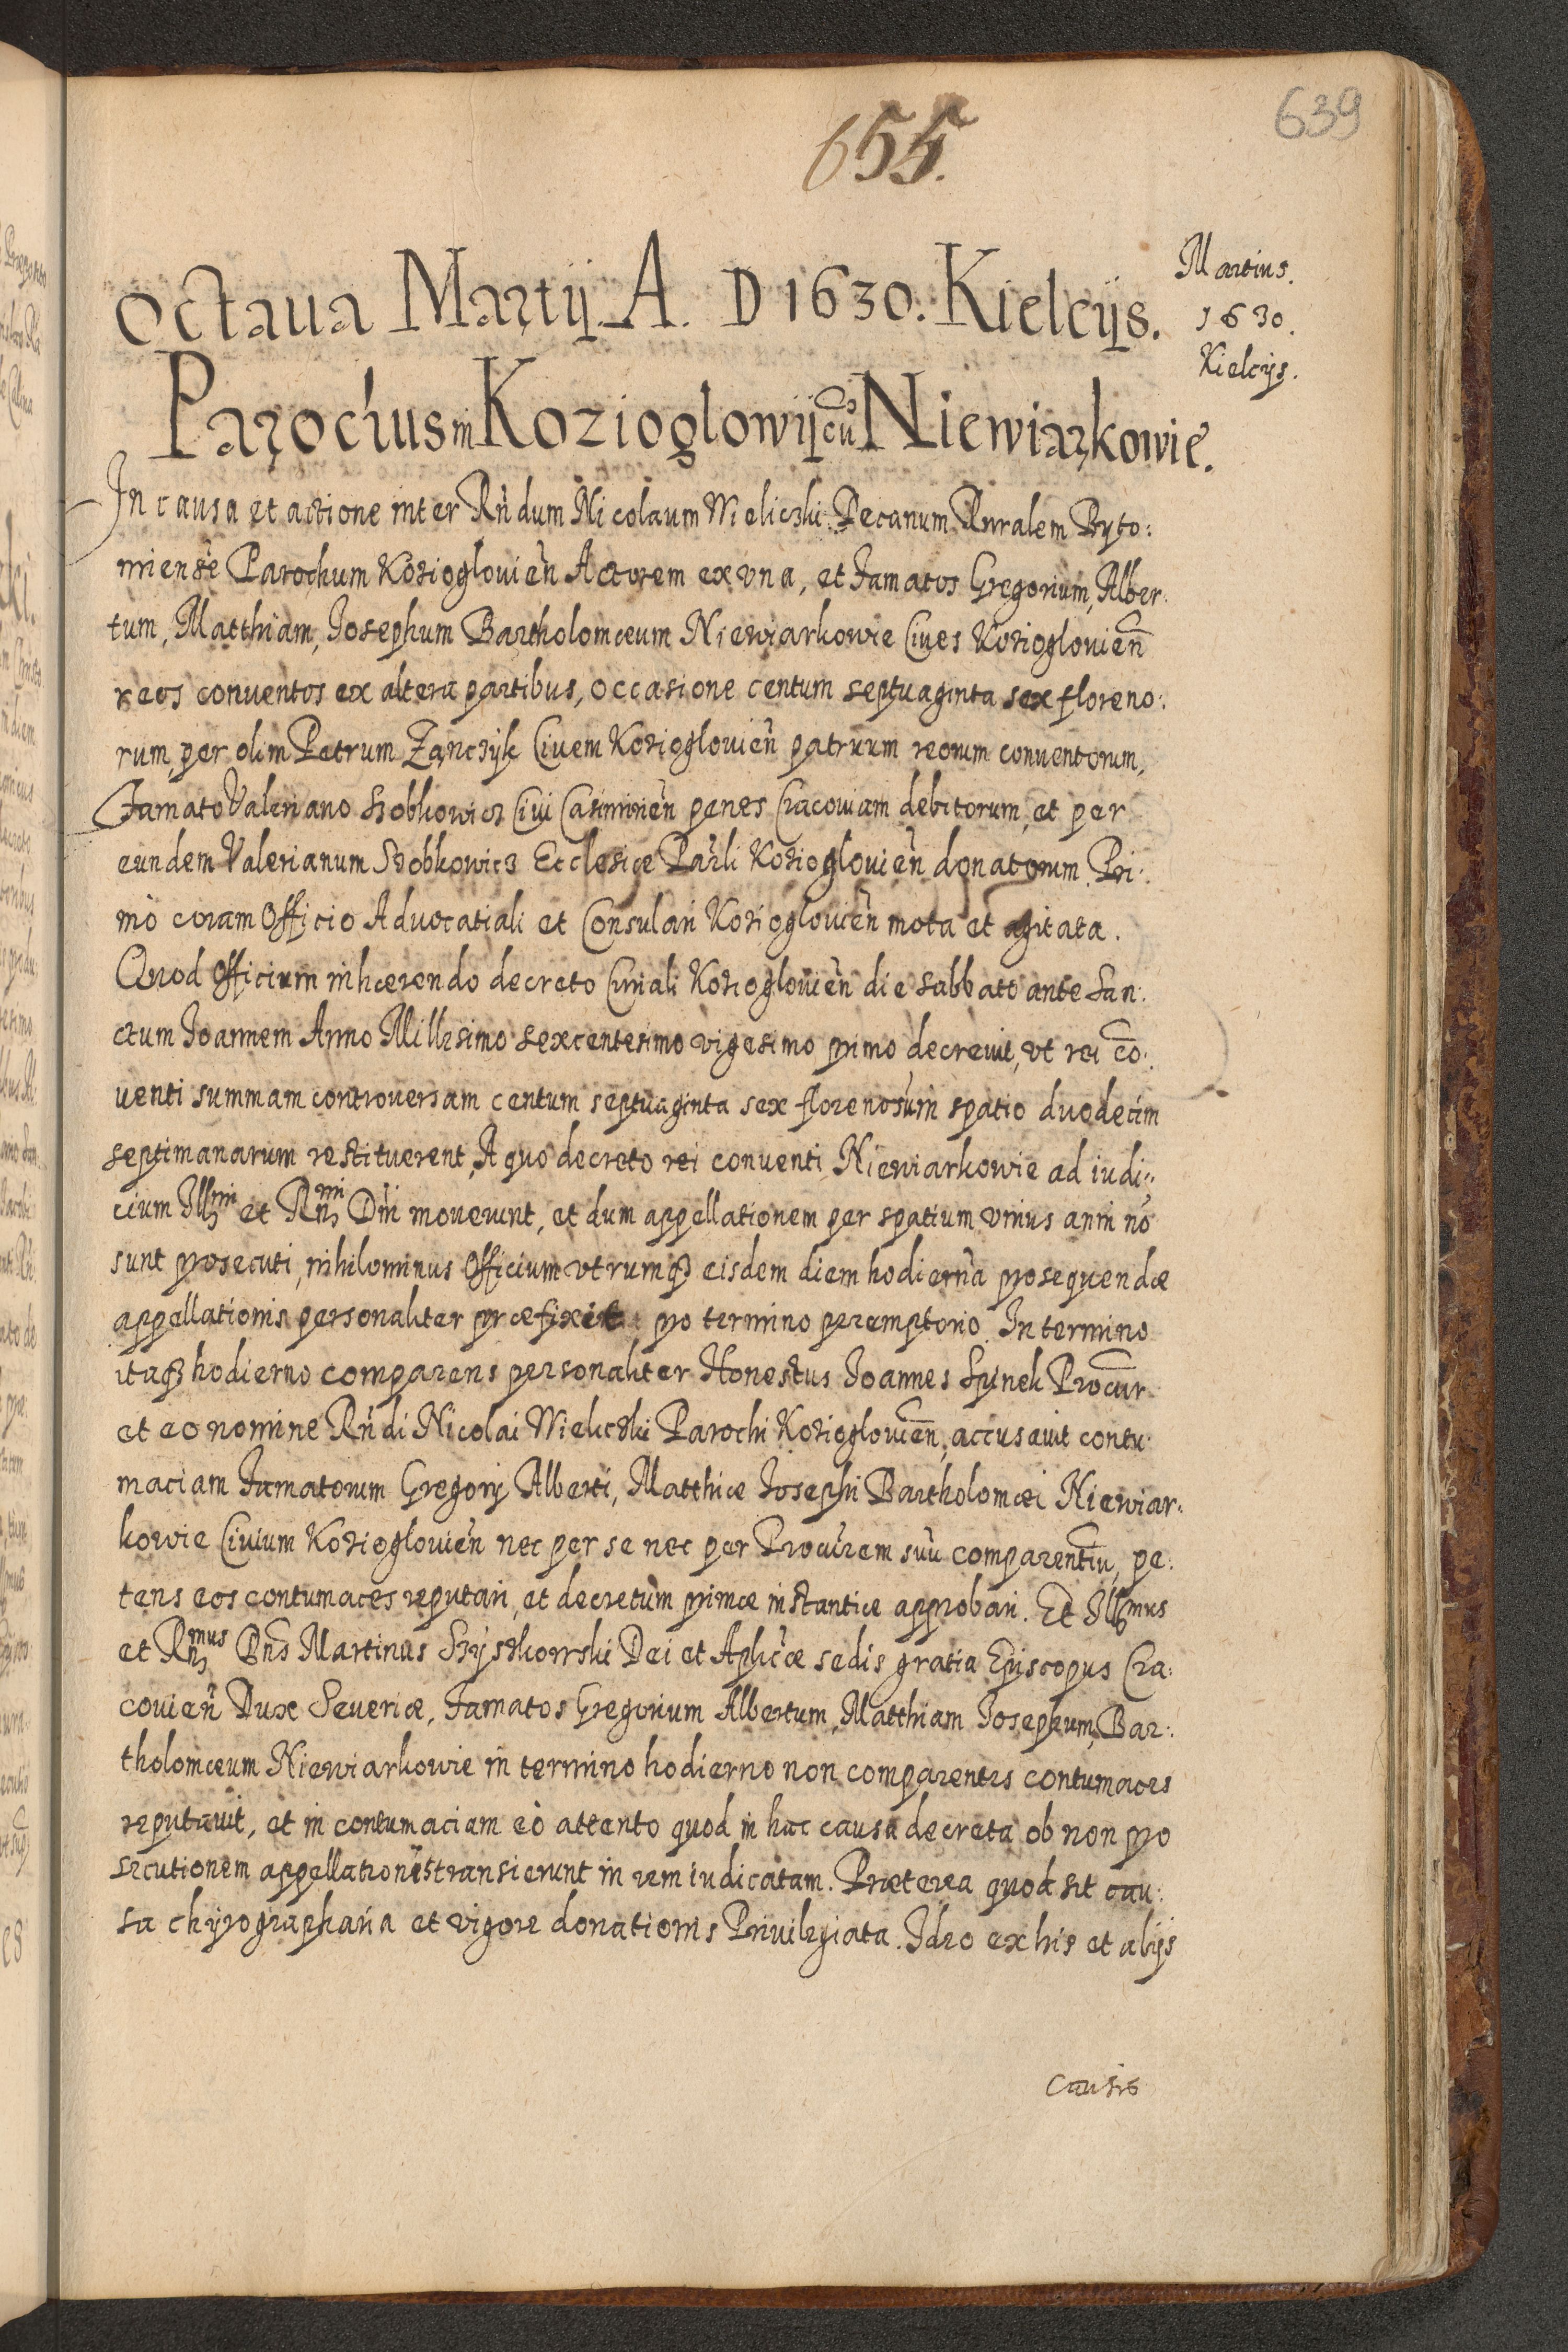 639
655.
Martius.
1630.
Kielcijs.
Octaua Martij A. D 1630. Kielcijs.
Parochus in Kozioglowij cū Niewiarkowie.
In causa et actione inter Rndum Nicolaum Wieliczki Decanum Ruralem Byto:
miensē Parochum Kozioglouien̄ Actorem ex vna, et Famatos Gregorium, Alber:
tum, Matthiam, Josephum Bartholomæum Niewiarkowie Ciues Kozioglouien̄
reos conuentos ex altera partibus, occasione centum septuaginta sex floreno:
rum, per olim Petrum Zanczyk Ciuem Kozioglouien̄ patruum reorum conuentorum,
Famato Valeriano Szobkowicz Ciui Casimirien̄ penes Cracouiam debitorum, et per
eundem Valerianum Szobkowicz Ecclesiæ Parlī Kozioglouien̄ donatorum Pri:
mò coram Officio Aduocatiali et Consulari Kozioglouien̄ mota et agitata.
Quod Officium inhærendo decreto Ciuiali Kozioglouien̄ die Sabbato ante San:
ctum Joannem Anno Millesimo sexcentesimo vigesimo primo decreuit, vt rei cō:
uenti summam controuersam centum septuaginta sex florenorum in spatio duodecim
septimanarum restituerent, A quo decreto rei conuenti Niewiarkowie ad iudi:
cium Illmi et Rmi Dni mouerunt, et dum appellationem per spatium vnius anni nō
sunt prosecuti, nihilominus Officium vtrumq3 eisdem diem hodiernā prosequendæ
appellationis personaliter præfixit pro termino peremptorio. In termino
itaq3 hodierno comparens personaliter Honestus Joannes Spinek Procur
et eo nomine Rndi Nicolai Wieliczki Parochi Kozioglouien̄, accusauit contu:
maciam Famatorum Gregorij Alberti, Matthiæ Josephi Bartholomæi Niewiar:
kowie Ciuium Kozioglouien̄ nec per se nec per Procurem suū comparentiū, pe:
tens eos contumaces reputari, et decretum primæ instantiæ approbari. Et Illmus
et Rmus Dns Martinus Szyszkowski Dei et Aplicæ sedis gratia Episcopus Cra:
couien̄ Dux Seueriæ, Famatos Gregorium Albertum, Matthiam Josephum, Bar:
tholomæum Niewiarkowie in termino hodierno non comparentes contumaces
reputauit, et in contumaciam eò attento quod in hac causa decreta ob non pro
secutionem appellationis transierunt in rem iudicatam. Præterea quod sit cau:
sa chyrographaria et vigore donationis Priuilegiata. Ideo ex his et alijs
causis